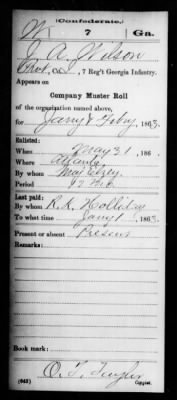 (Confederate.)
W 7 Ga.
J. A. Wilson
Pvt, Co. , 7 Reg't Georgia Infantry.
Appears on
Company Muster Roll
of the organization named above,
for Jany & Feby, 1863.
Enlisted:
When May 31, 186 .
Where Atlanta
By whom Maj
Period 12 Mo
Last paid:
By whom R. K. Holliday
To what time Jany 1, 1863.
Present or absent Present
Remarks:
Book mark:
(642) Copyist.